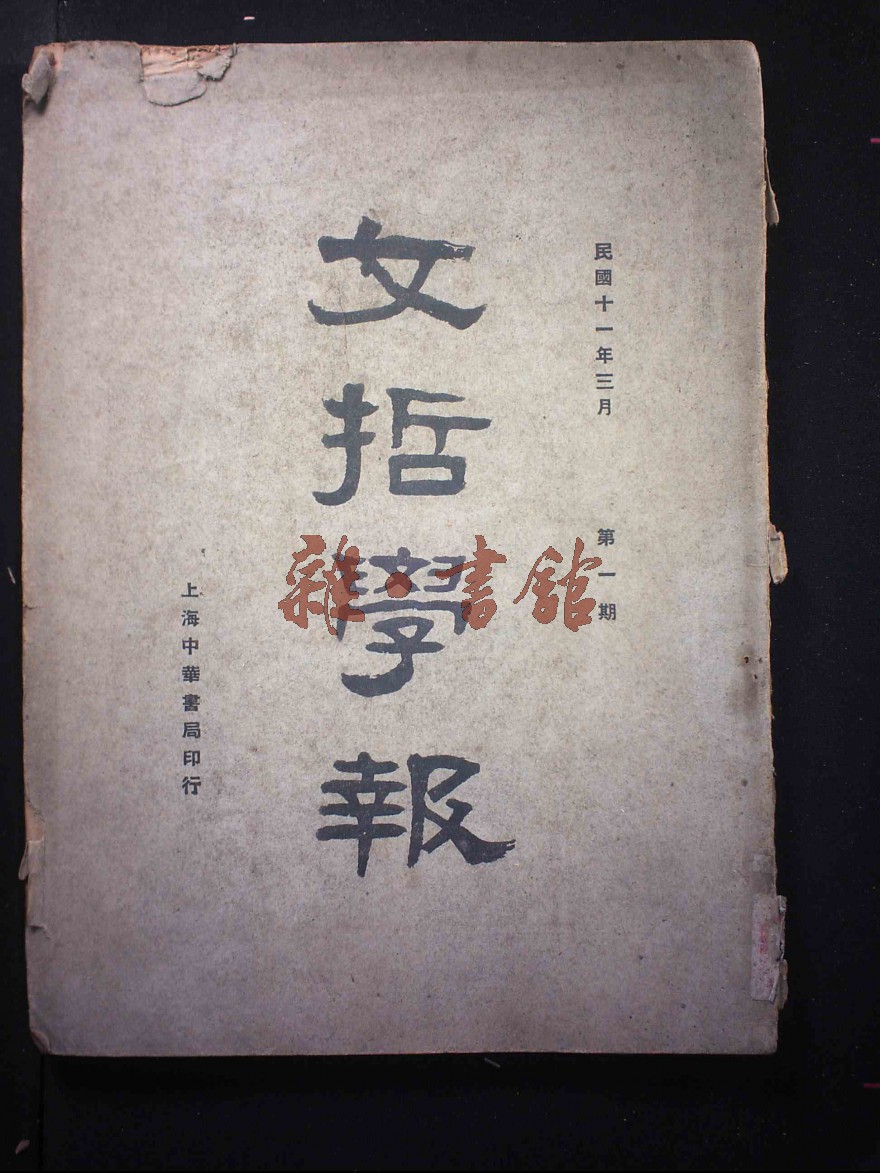 民國十一年三月 第一期
文哲學報
上海中華書局印行
雜·書館